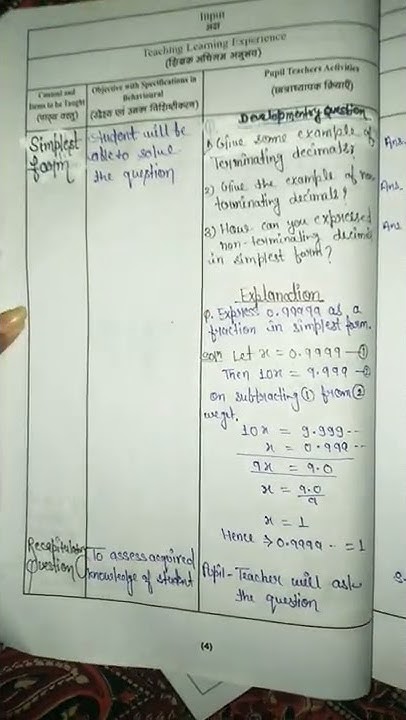 Input
अदा
Teaching Learning Experience
(शिक्षक अधिगम अनुभव)
Content and
Items to be Taught
(पाठ्य वस्तु)
Objective with Specifications in
Behavioural
(उद्देश्य एवं उनका विशिष्टीकरण)
Pupil Teachers Activities
(छात्राध्यापक क्रियाएँ)
Simplest
form
Student will be
able to solve
the question
Developmentry Question
1) Give some example of
Terminating decimals?
2) Give the example of non
torminating decimals?
3) How can you expressed
non-terminating decimal
in simplest form?
Explanation
Q. Express 0.99999 as a
fraction in simplest form.
Let x = 0.9999 — ①
Then 10x = 9.999 — ②
on subtracting ① from ②
we get,
10x = 9.999--
x = 0.999--
9x = 9.0
x = 9.0
9
x = 1
Hence => 0.9999 - = 1
Recapitulation
Question
To assess acquired
knowledge of student
Pupil-Teacher will ask
the question
(4)
Ans.
Ans.
Ans